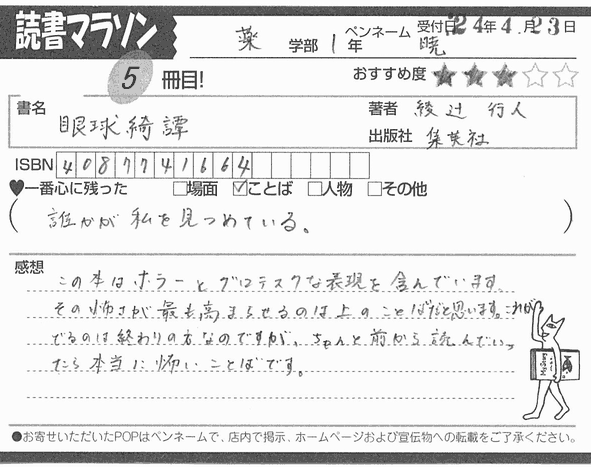 読書マラソン
薬 学部 1年 ペンネーム 暁 受付日 '24年4月23日
5 冊目! おすすめ度 ★★★☆☆
書名 眼球綺譚 著者 綾辻 行人
出版社 集英社
ISBN 4087741664
♥一番心に残った □場面 ☑ことば □人物 □その他
( 誰かが私を見つめている。 )
感想
この本はホラーとグロテスクな表現を含んでいます。
その怖さが最も高まらせるのは上のことばだと思います。これが
でるのは終わりの方なのですが、ちゃんと前から読んでいっ
たら本当に怖いことばです。
●お寄せいただいたPOPはペンネームで、店内で掲示、ホームページおよび宣伝物への転載をご了承ください。